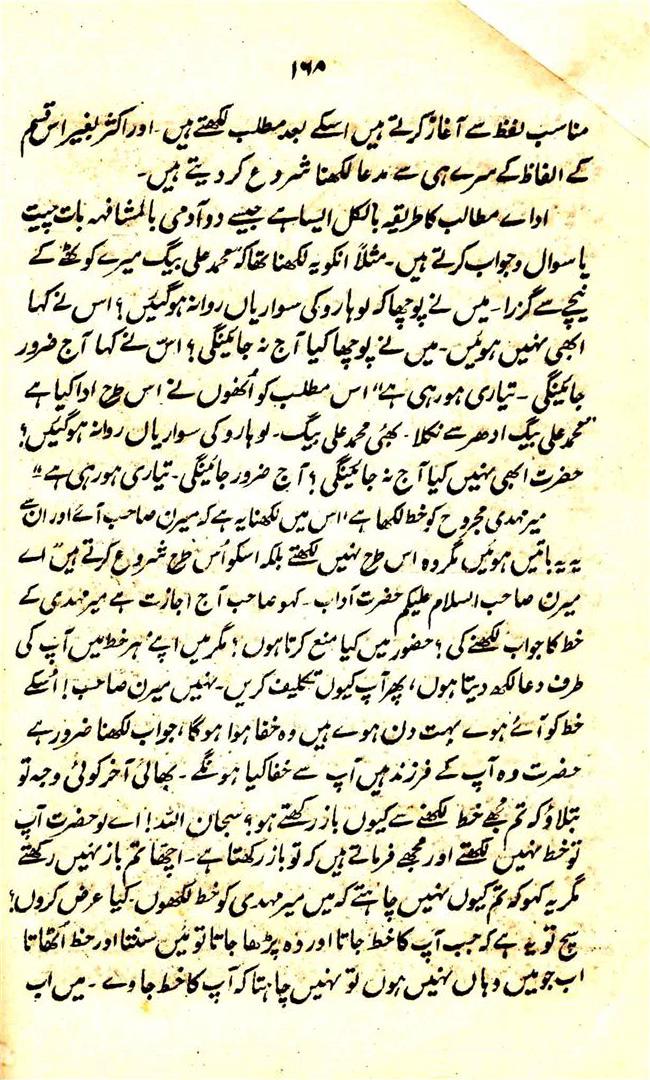 ١٦٨
مناسب لفظ سے آغاز کرتے ہیں اسکے بعد مطلب لکھتے ہیں۔ اور اکثر بغیر اس قسم
کے الفاظ کے سرے ہی سے مدعا لکھنا شروع کر دیتے ہیں۔
اداے مطالب کا طریقہ بالکل ایسا ہے جیسے دو آدمی بالمشافہہ بات چیت
یا سوال و جواب کرتے ہیں۔ مثلاً انکو یہ لکھنا تھا کہ "محمد علی بیگ میرے کوٹھے کے
نیچے سے گزرا۔ میں نے پوچھا کہ لوہارو کی سواریاں روانہ ہو گئیں؟ اس نے کہا
ابھی نہیں ہوئیں۔ میں نے پوچھا کیا آج نہ جائینگی؟ اس نے کہا آج ضرور
جائینگی۔ تیاری ہو رہی ہے" اس مطلب کو اُنھوں نے اس طرح ادا کیا ہے
"محمد علی بیگ ادھر سے نکلا۔ بھئی محمد علی بیگ۔ لوہارو کی سواریاں روانہ ہو گئیں؟
حضرت ابھی نہیں کیا آج نہ جائینگی؟ آج ضرور جائینگی۔ تیاری ہو رہی ہے"
میر مہدی مجروح کو خط لکھا ہے، اس میں لکھنا یہ ہے کہ میرن صاحب آے اور ان سے
یہ یہ باتیں ہوئیں مگر وہ اس طرح نہیں لکھتے بلکہ اسکو اُس طرح شروع کرتے ہیں "اے
میرن صاحب السلام علیکم حضرت آداب۔ کہو صاحب آج اجازت ہے میر مہدی کے
خط کا جواب لکھنے کی؟ حضور میں کیا منع کرتا ہوں؟ مگر میں اپنے ہر خط میں آپ کی
طرف دعا لکھ دیتا ہوں، پھر آپ کیوں تکلیف کریں۔ نہیں میرن صاحب! اُسکے
خط کو آئے ہوے بہت دن ہوے ہیں وہ خفا ہوا ہوگا، جواب لکھنا ضرور ہے
حضرت وہ آپ کے فرزند ہیں آپ سے خفا کیا ہونگے۔ بھائی آخر کوئی وجہ تو
بتلاؤ کہ تم مجھے خط لکھنے سے کیوں باز رکھتے ہو؟ سبحان اللہ! اے لو حضرت آپ
تو خط نہیں لکھتے اور مجھے فرماتے ہیں کہ تو باز رکھتا ہے۔ اچھا تم باز نہیں رکھتے
مگر یہ کہو کہ تم کیوں نہیں چاہتے کہ میں میر مہدی کو خط لکھوں۔ کیا عرض کروں؟
سچ تو یہ ہے کہ جب آپ کا خط جاتا اور وہ پڑھا جاتا تو میں سنتا اور حظ اُٹھاتا
اب جو میں وہاں نہیں ہوں تو نہیں چاہتا کہ آپ کا خط جاوے۔ میں اب